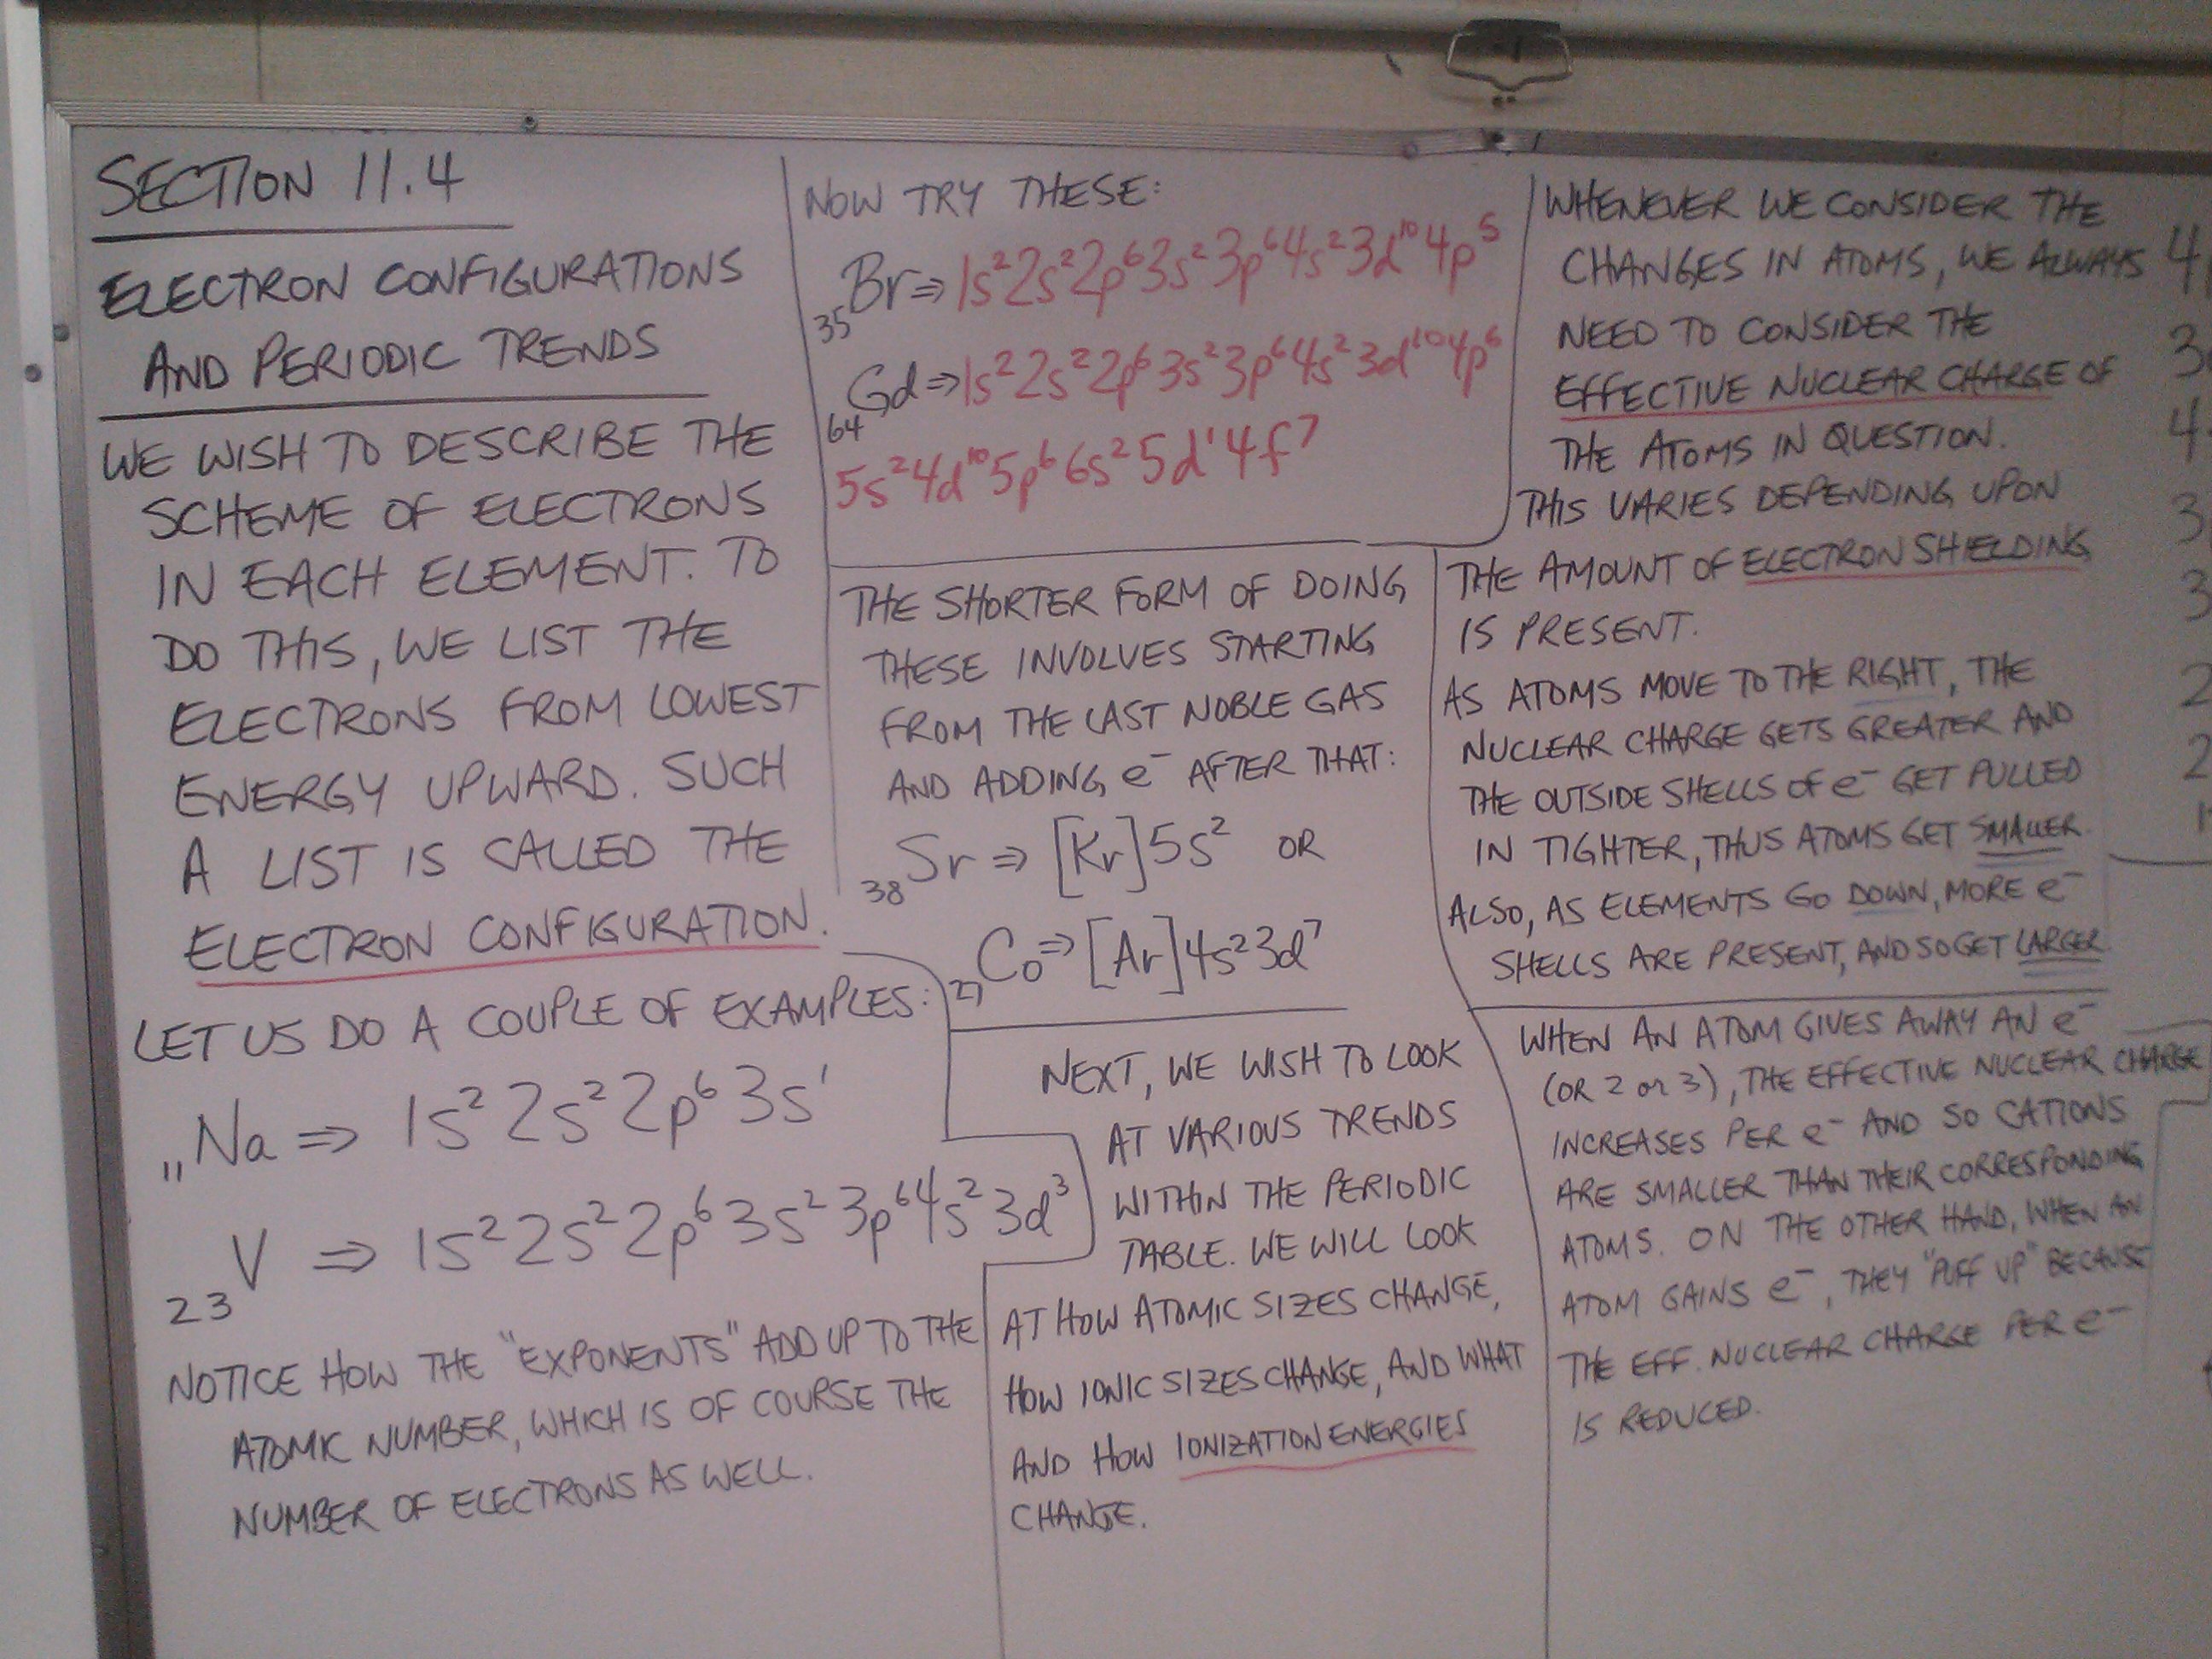 SECTION 11.4
ELECTRON CONFIGURATIONS
AND PERIODIC TRENDS
WE WISH TO DESCRIBE THE
SCHEME OF ELECTRONS
IN EACH ELEMENT. TO
DO THIS, WE LIST THE
ELECTRONS FROM LOWEST
ENERGY UPWARD. SUCH
A LIST IS CALLED THE
ELECTRON CONFIGURATION.
LET US DO A COUPLE OF EXAMPLES:
₁₁Na ⇒ 1s² 2s² 2p⁶ 3s¹
₂₃V ⇒ 1s² 2s² 2p⁶ 3s² 3p⁶ 4s² 3d³
NOTICE HOW THE "EXPONENTS" ADD UP TO THE
ATOMIC NUMBER, WHICH IS OF COURSE THE
NUMBER OF ELECTRONS AS WELL.
NOW TRY THESE:
₃₅Br ⇒ 1s² 2s² 2p⁶ 3s² 3p⁶ 4s² 3d¹⁰ 4p⁵
₆₄Gd ⇒ 1s² 2s² 2p⁶ 3s² 3p⁶ 4s² 3d¹⁰ 4p⁶
5s² 4d¹⁰ 5p⁶ 6s² 5d¹ 4f⁷
THE SHORTER FORM OF DOING
THESE INVOLVES STARTING
FROM THE LAST NOBLE GAS
AND ADDING e⁻ AFTER THAT:
₃₈Sr ⇒ [Kr] 5s² OR
₂₇Co ⇒ [Ar] 4s² 3d⁷
NEXT, WE WISH TO LOOK
AT VARIOUS TRENDS
WITHIN THE PERIODIC
TABLE. WE WILL LOOK
AT HOW ATOMIC SIZES CHANGE,
HOW IONIC SIZES CHANGE, AND WHAT
AND HOW IONIZATION ENERGIES
CHANGE.
WHENEVER WE CONSIDER THE
CHANGES IN ATOMS, WE ALWAYS
NEED TO CONSIDER THE
EFFECTIVE NUCLEAR CHARGE OF
THE ATOMS IN QUESTION.
THIS VARIES DEPENDING UPON
THE AMOUNT OF ELECTRON SHIELDING
IS PRESENT.
AS ATOMS MOVE TO THE RIGHT, THE
NUCLEAR CHARGE GETS GREATER AND
THE OUTSIDE SHELLS OF e⁻ GET PULLED
IN TIGHTER, THUS ATOMS GET SMALLER.
ALSO, AS ELEMENTS GO DOWN, MORE e⁻
SHELLS ARE PRESENT, AND SO GET LARGER.
WHEN AN ATOM GIVES AWAY AN e⁻
(OR 2 or 3), THE EFFECTIVE NUCLEAR CHARGE
INCREASES PER e⁻ AND SO CATIONS
ARE SMALLER THAN THEIR CORRESPONDING
ATOMS. ON THE OTHER HAND, WHEN AN
ATOM GAINS e⁻, THEY "PUFF UP" BECAUSE
THE EFF. NUCLEAR CHARGE PER e⁻
IS REDUCED.
4
3
4
3
3
2
2